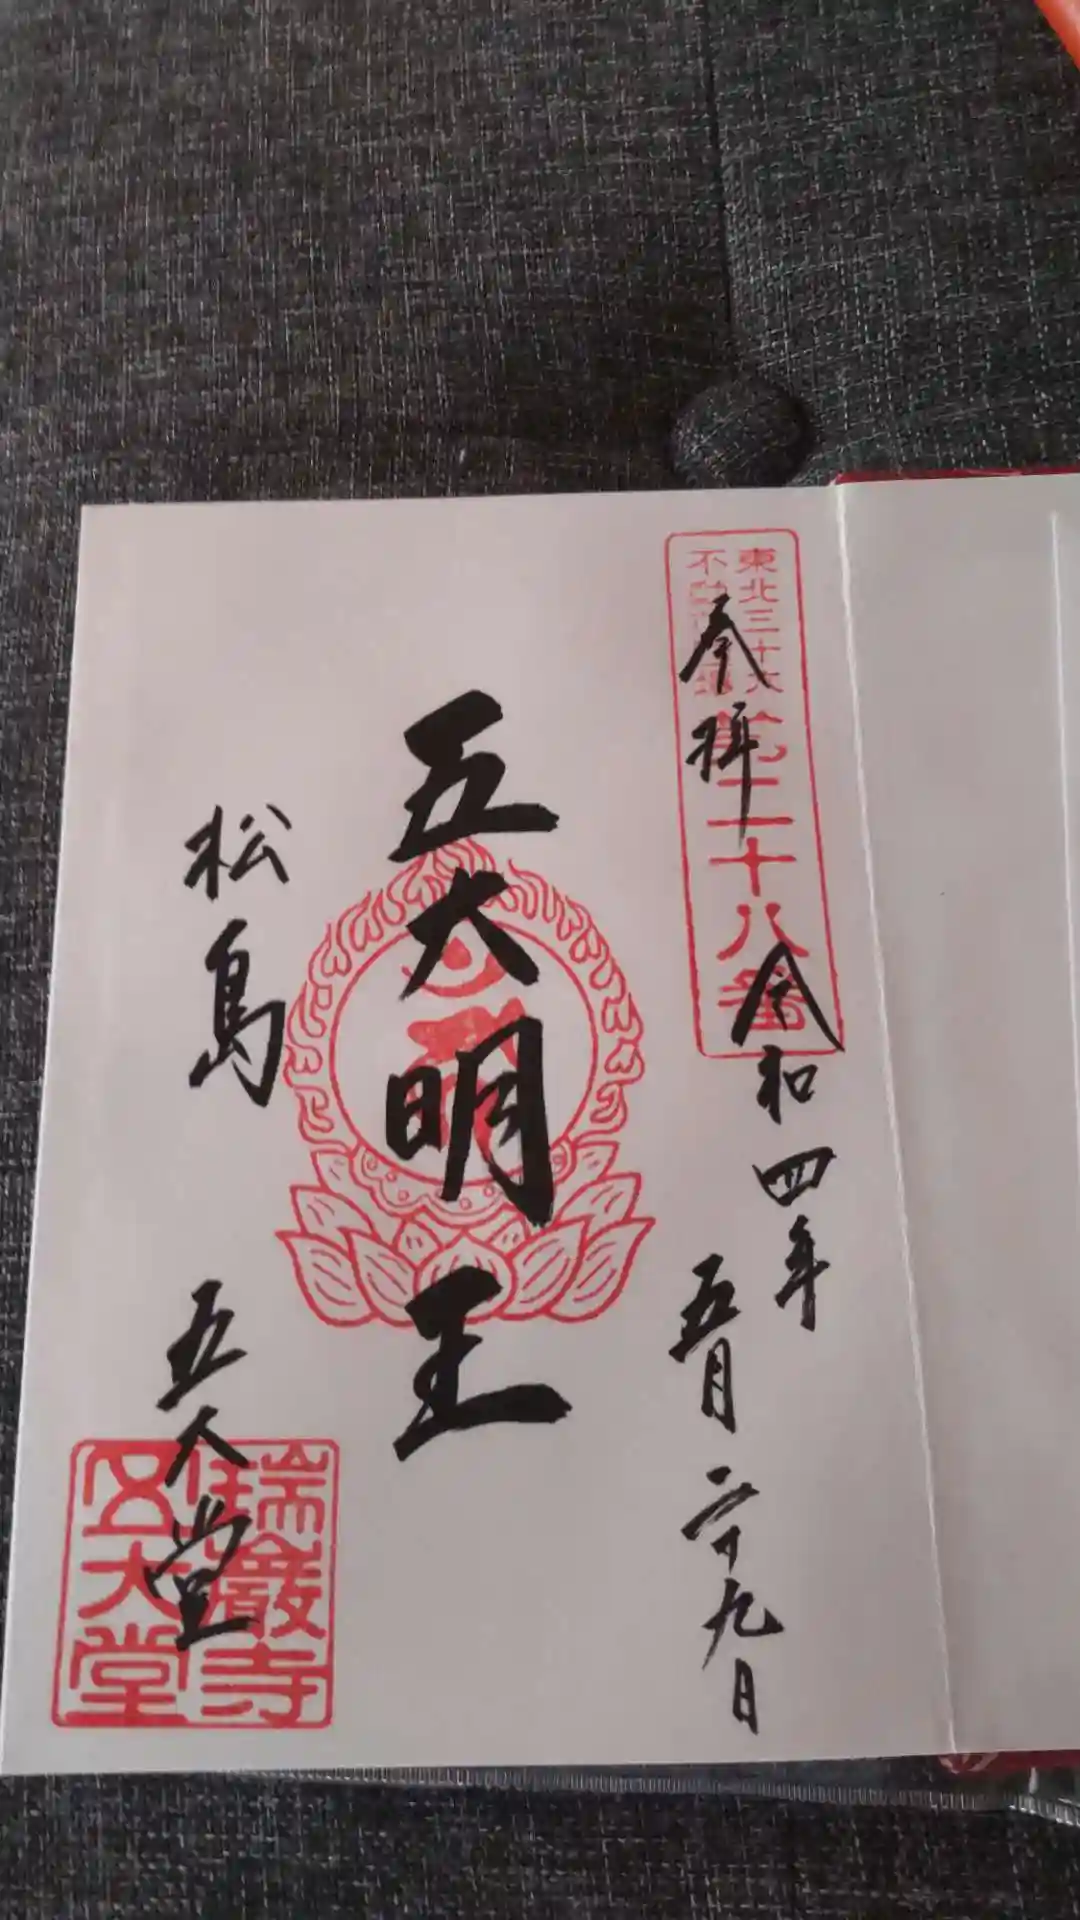 東北三十六
不動尊霊場
第二十八番
奉拝
令和四年
五月二十九日
五大明王
松島
五大堂
瑞巌寺
五大堂